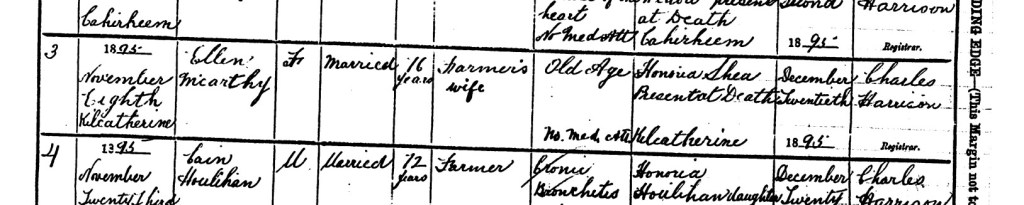 heart present Second Harrison
Cahirheem at Death
No Med Att Cahirheem 1895 Registrar.
3 1895 Ellen F Married 76 Farmer's Old Age Honoria Shea December Charles
November McCarthy years wife Present at Death Twentieth Harrison
Eighth
Kilcatherine No. Med. Att Kilcatherine 1895 Registrar.
4 1895 Cain M Married 72 Farmer Cronic Honoria December Charles
November Houlihan years Bronchetis Houlihan daughter Twenty Harrison
Twenty third
DING EDGE (This Margin not to